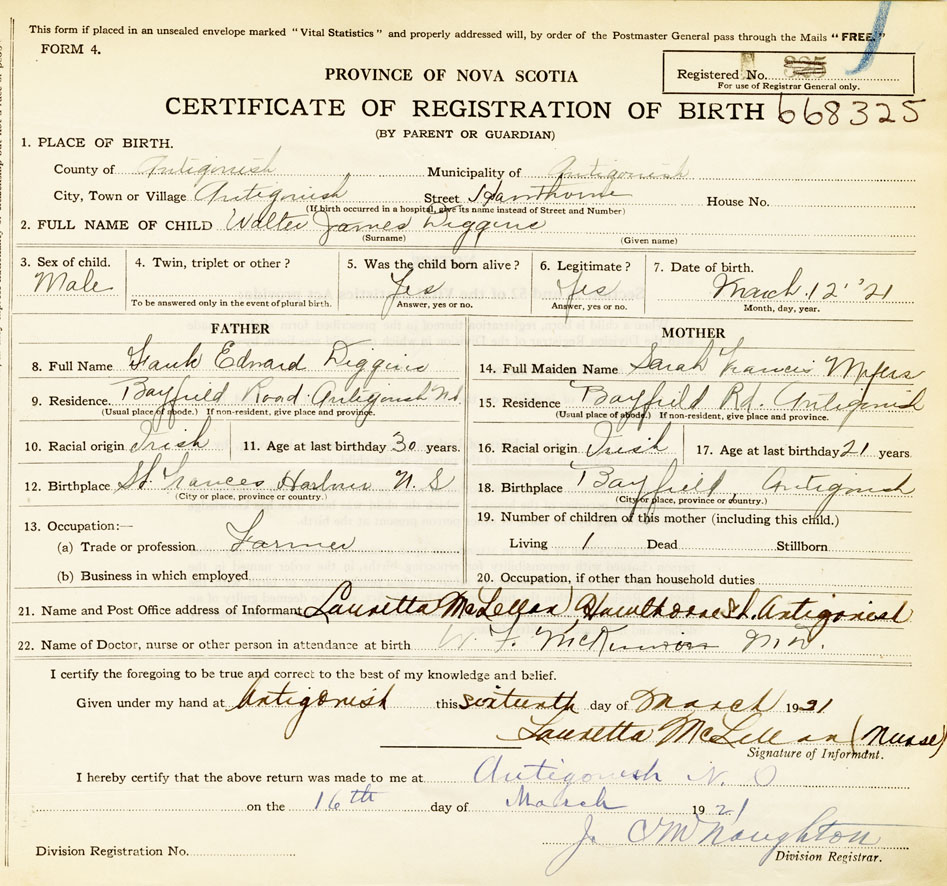 This form if placed in an unsealed envelope marked "Vital Statistics" and properly addressed will, by order of the Postmaster General pass through the Mails "FREE."
FORM 4.
PROVINCE OF NOVA SCOTIA
Registered No.
For use of Registrar General only.
CERTIFICATE OF REGISTRATION OF BIRTH 668325
(BY PARENT OR GUARDIAN)
1. PLACE OF BIRTH.
County of Antigonish Municipality of Antigonish
City, Town or Village Antigonish Street Hawthorne House No.
(If birth occurred in a hospital, give its name instead of Street and Number)
2. FULL NAME OF CHILD Walter James Diggins
(Surname) (Given name)
3. Sex of child. 4. Twin, triplet or other? 5. Was the child born alive? 6. Legitimate? 7. Date of birth.
Male Yes Yes March 12 '21
To be answered only in the event of plural birth. Answer, yes or no. Answer, yes or no. Month, day, year.
FATHER MOTHER
8. Full Name Frank Edward Diggins 14. Full Maiden Name Sarah Francis Myers
9. Residence Bayfield Road Antigonish 15. Residence Bayfield Rd. Antigonish
(Usual place of abode.) If non-resident, give place and province. (Usual place of abode.) If non-resident, give place and province.
10. Racial origin Irish 11. Age at last birthday 30 years. 16. Racial origin Irish 17. Age at last birthday 21 years.
12. Birthplace St. Frances Harbour N. S 18. Birthplace Bayfield, Antigonish
(City or place, province or country.) (City or place, province or country.)
13. Occupation:— 19. Number of children of this mother (including this child.)
(a) Trade or profession Farmer Living 1 Dead Stillborn
(b) Business in which employed 20. Occupation, if other than household duties
21. Name and Post Office address of Informant Lauretta McLellan Hawthorne St. Antigonish
22. Name of Doctor, nurse or other person in attendance at birth W. F. McKinnon M.D.
I certify the foregoing to be true and correct to the best of my knowledge and belief.
Given under my hand at Antigonish this sixteenth day of March 1921
Lauretta McLellan (Nurse)
Signature of Informant.
I hereby certify that the above return was made to me at Antigonish N. S
on the 16th day of March 1921
McNaughton
Division Registration No. Division Registrar.